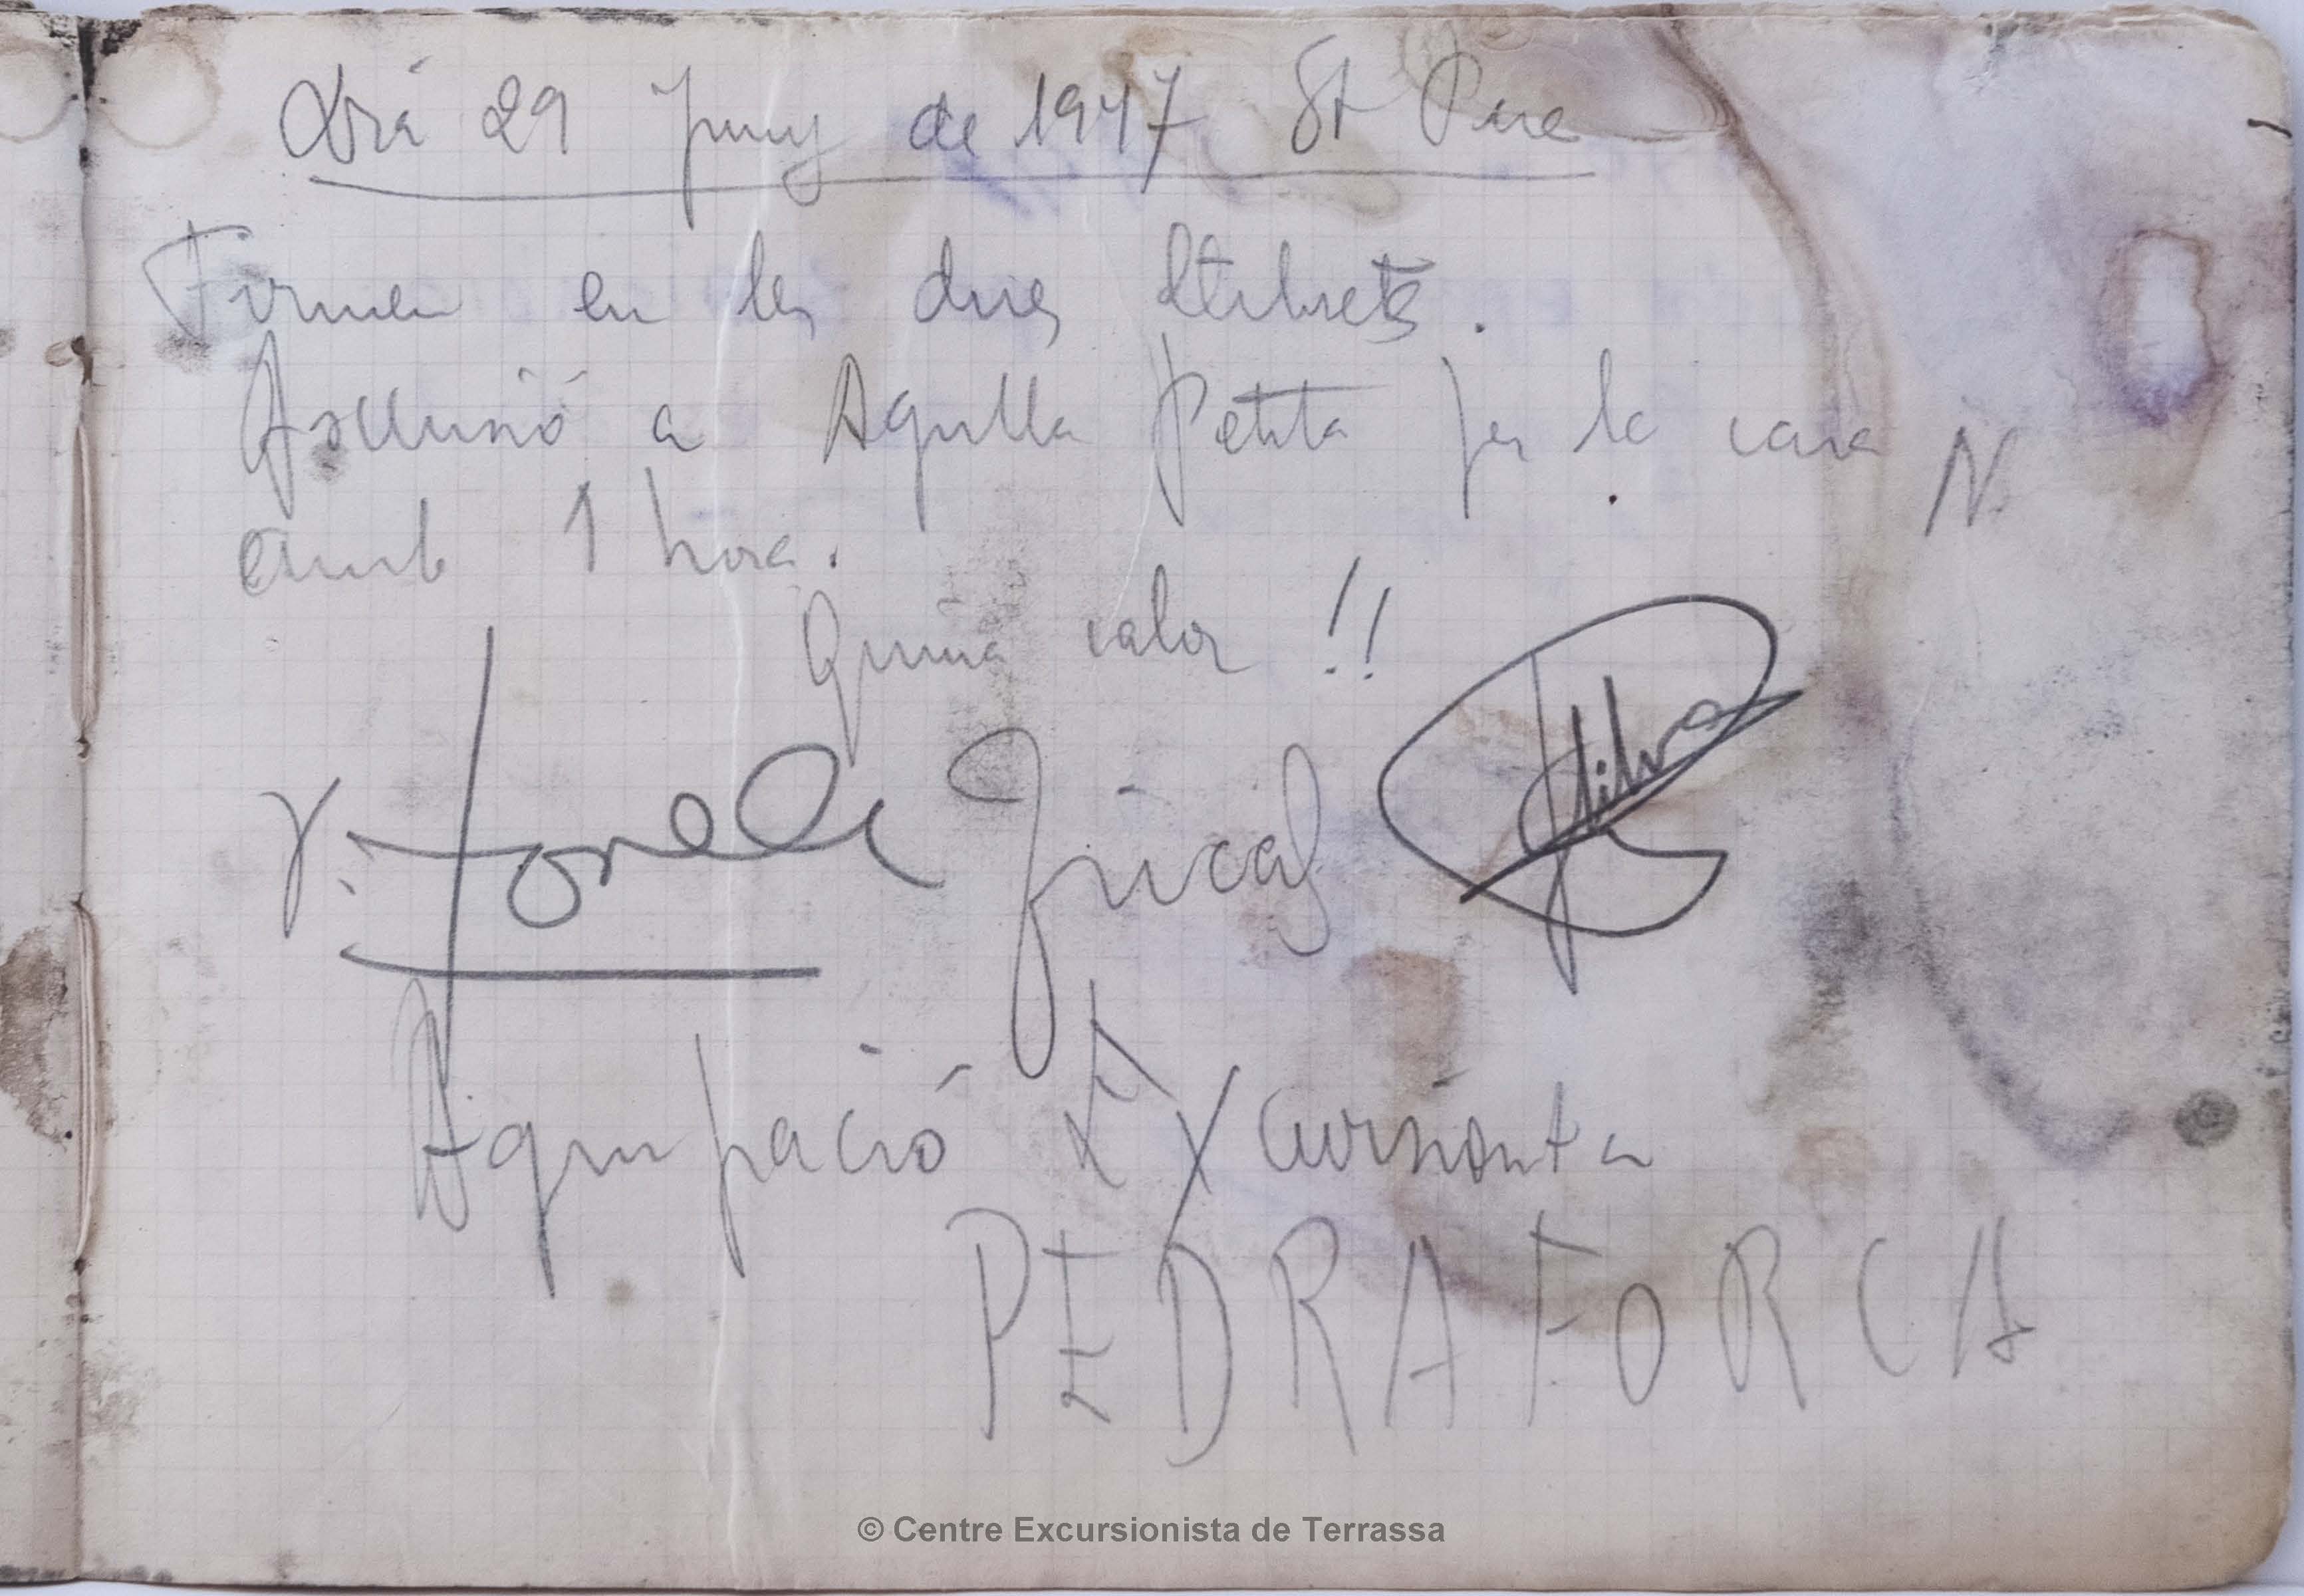 Dia 29 Juny de 1947 St Pere
Firmem en les dues llibrets.
Ascensió a Agulla Petita per la cara N.
amb 1 hora.
Quina calor !!
Agrupació Excursionista
PEDRAFORCA
© Centre Excursionista de Terrassa